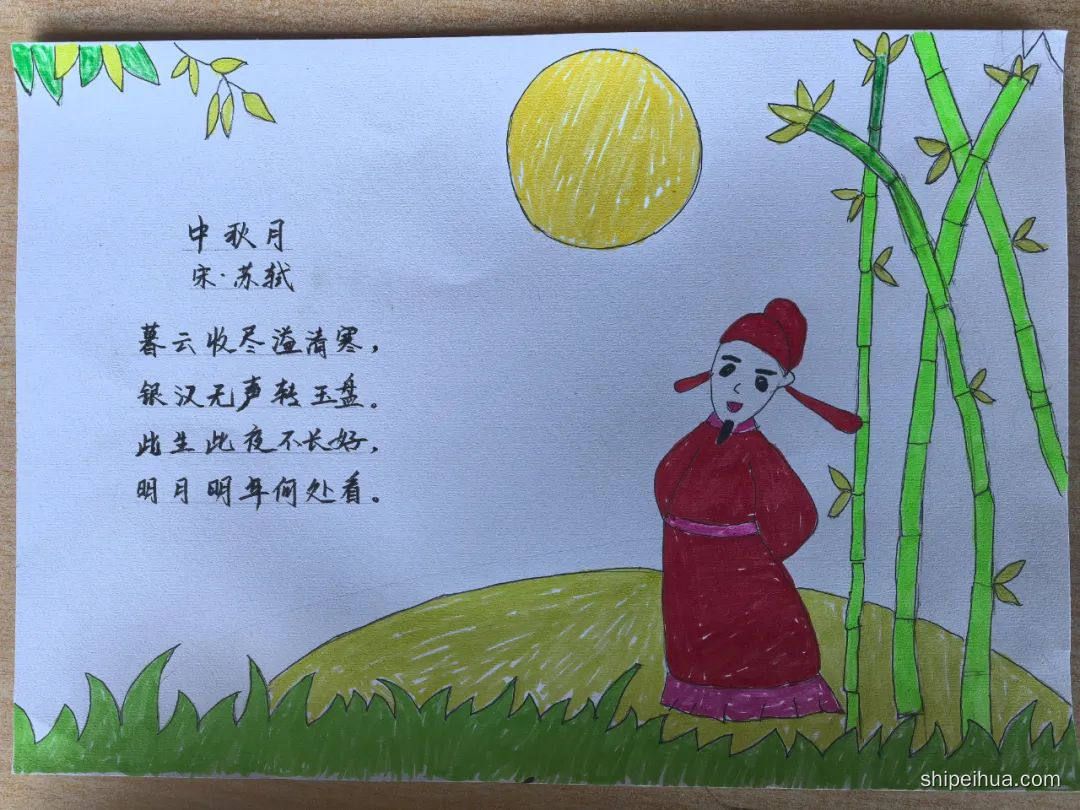 中秋月
宋·苏轼
暮云收尽溢清寒，
银汉无声转玉盘。
此生此夜不长好，
明月明年何处看。
shipeihua.com